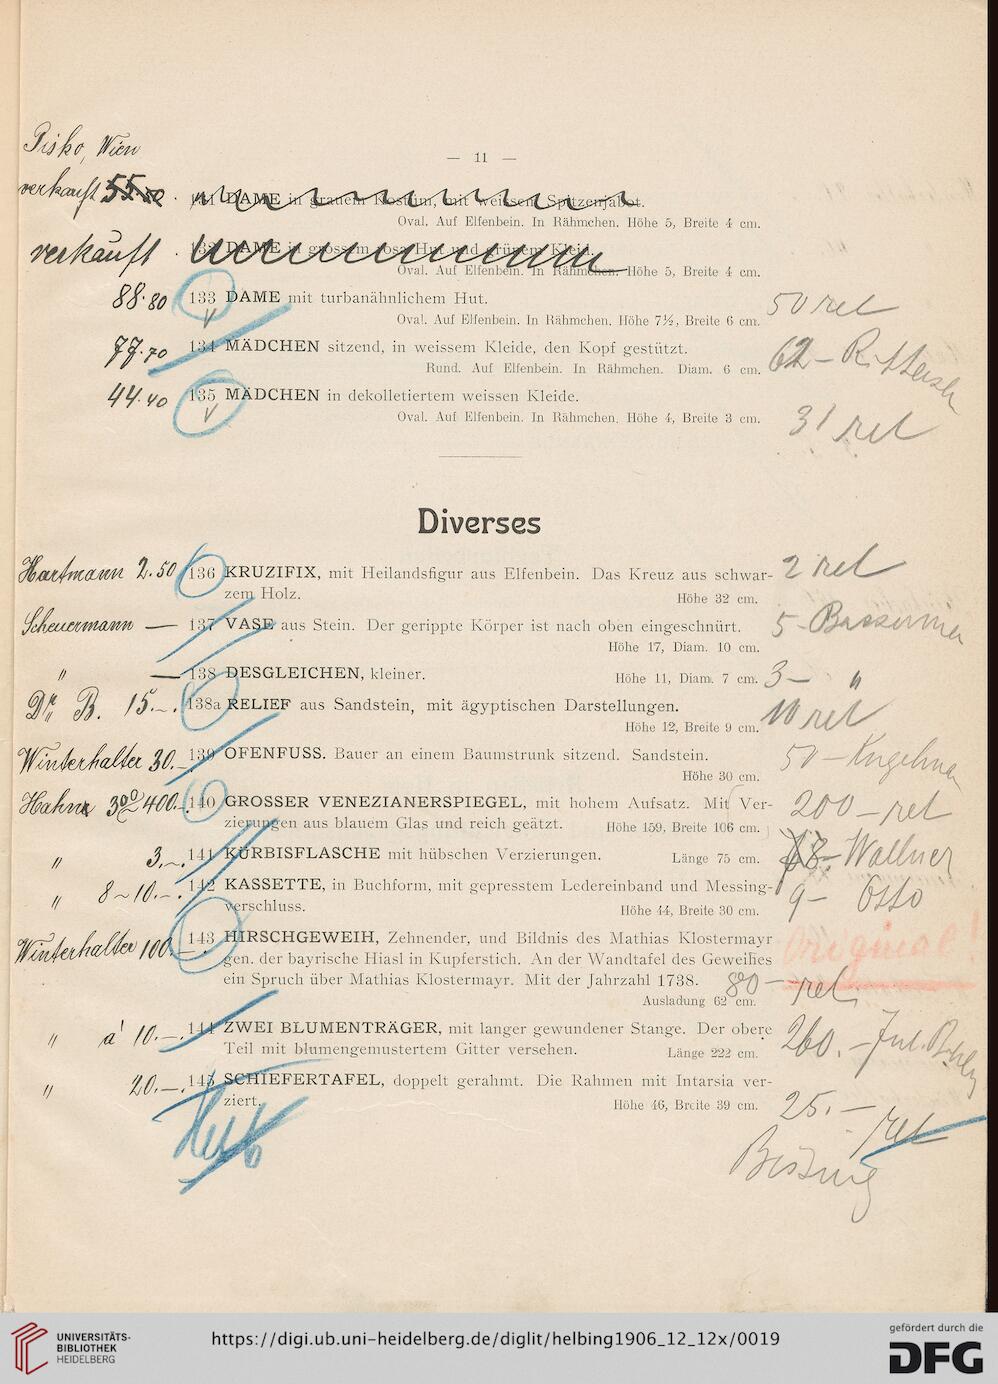 Pisko, Wien
— 11 —
verkauft 55.50 . DAME in grauem Kostüm, mit weissem Spitzenjabot.
Oval. Auf Elfenbein. In Rähmchen. Höhe 5, Breite 4 cm.
verkauft . DAME in grossem rosa Hut und grünem Kleid.
Oval. Auf Elfenbein. In Rähmchen. Höhe 5, Breite 4 cm.
88.80 133 DAME mit turbanähnlichem Hut. 50 ret
Oval. Auf Elfenbein. In Rähmchen. Höhe 7½, Breite 6 cm.
77.70 134 MÄDCHEN sitzend, in weissem Kleide, den Kopf gestützt.
Rund. Auf Elfenbein. In Rähmchen. Diam. 6 cm. 62 –
44.40 135 MÄDCHEN in dekolletiertem weissen Kleide.
Oval. Auf Elfenbein. In Rähmchen. Höhe 4, Breite 3 cm. 31 ret
Diverses
Hartmann 2.50 136 KRUZIFIX, mit Heilandsfigur aus Elfenbein. Das Kreuz aus schwar- 2 ret
zem Holz. Höhe 32 cm.
Scheuermann — 137 VASE aus Stein. Der gerippte Körper ist nach oben eingeschnürt. 5 –
Höhe 17, Diam. 10 cm.
" — 138 DESGLEICHEN, kleiner. Höhe 11, Diam. 7 cm. 3 — "
Dr. B. 15.–. 138a RELIEF aus Sandstein, mit ägyptischen Darstellungen. 10 ret
Höhe 12, Breite 9 cm.
Winterhalter 30.– 139 OFENFUSS. Bauer an einem Baumstrunk sitzend. Sandstein. 50 –
Höhe 30 cm.
Hahn 300 400.–. 140 GROSSER VENEZIANERSPIEGEL, mit hohem Aufsatz. Mit Ver- 200 – ret
zierungen aus blauem Glas und reich geätzt. Höhe 159, Breite 106 cm.
" 3.–. 141 KÜRBISFLASCHE mit hübschen Verzierungen. Länge 75 cm. Wallner
" 8–10.–. 142 KASSETTE, in Buchform, mit gepresstem Ledereinband und Messing-
verschluss. Höhe 44, Breite 30 cm. 9 – Otto
Winterhalter 100.– 143 HIRSCHGEWEIH, Zehnender, und Bildnis des Mathias Klostermayr Original!
gen. der bayrische Hiasl in Kupferstich. An der Wandtafel des Geweihes
ein Spruch über Mathias Klostermayr. Mit der Jahrzahl 1738. 80 – ret.
Ausladung 62 cm.
" à 10.–. 144 ZWEI BLUMENTRÄGER, mit langer gewundener Stange. Der obere 260. –
Teil mit blumengemustertem Gitter versehen. Länge 222 cm.
" 20.–. 145 SCHIEFERTAFEL, doppelt gerahmt. Die Rahmen mit Intarsia ver-
ziert. Höhe 46, Breite 39 cm. 25. – ret
UNIVERSITÄTS-
BIBLIOTHEK
HEIDELBERG
https://digi.ub.uni-heidelberg.de/diglit/helbing1906_12_12x/0019
gefördert durch die
DFG